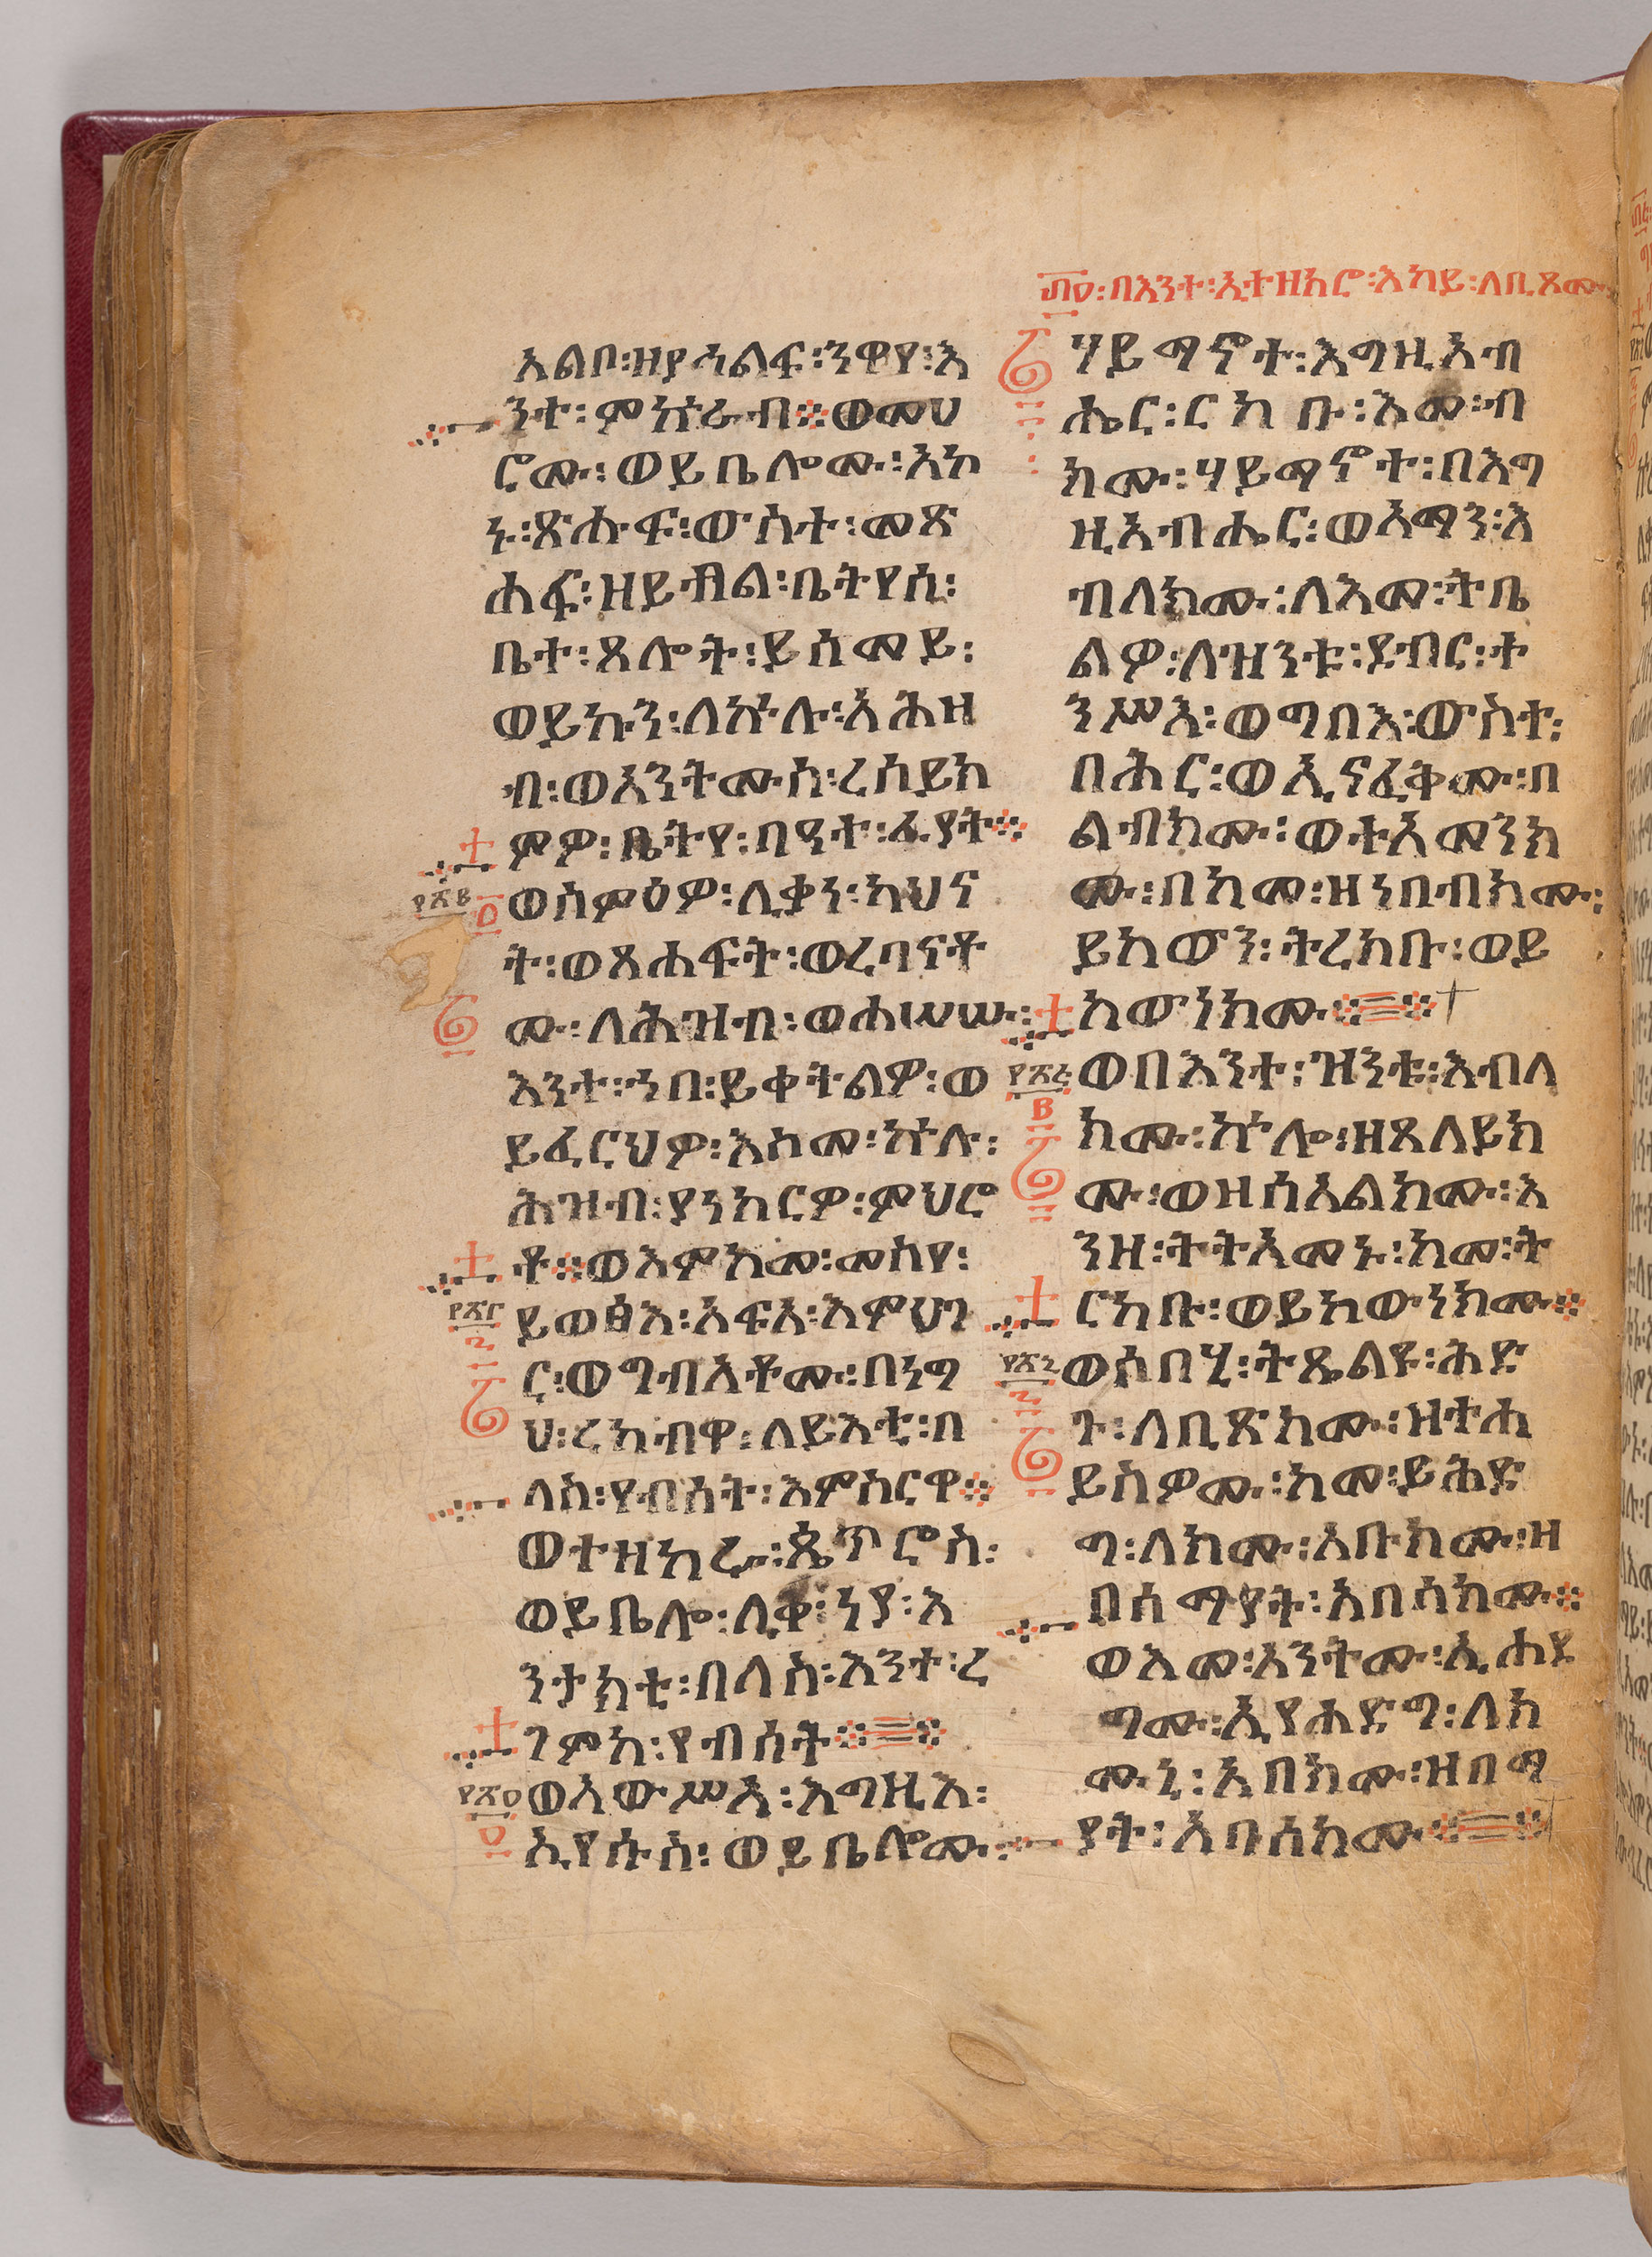 ፴፬፡በእንተ፡ኢተዘክሮ፡እኪይ፡ለቢጾሙ
አልቦ፡ዘያሓልፍ፡ንዋየ፡እ
ንተ፡ምኵራብ፨ወመህ
ሮሙ፡ወይቤሎሙ፡አኮ
ኑ፡ጽሑፍ፡ውስተ፡መጽ
ሐፍ፡ዘይብል፡ቤትየሰ፡
ቤተ፡ጸሎት፡ይሰመይ፡
ወይኩን፡ለኵሉ፡አሕዘ
ብ፡ወአንትሙሰ፡ረሰይክ
ምዎ፡ቤትየ፡በዓተ፡ፈያት፨
ወሰምዕዎ፡ሊቃነ፡ካህና
ት፡ወጸሐፍት፡ወረባናቶ
ሙ፡ለሕዝብ፡ወሐሠሡ፡
እንተ፡ኀበ፡ይቀትልዎ፡ወ
ይፈርህዎ፡እስመ፡ኵሉ፡
ሕዝብ፡ያነክርዎ፡ምህሮ
ቶ፨ወእምከመ፡መስየ፡
ይወፅእ፡አፍአ፡እምሀገ
ር፡ወግብአቶሙ፡በነግ
ህ፡ረከብዋ፡ለይእቲ፡በ
ለስ፡የብሰት፡እምስርዋ፨
ወተዘከረ፡ጴጥሮስ፡
ወይቤሎ፡ሊቀ፡ነያ፡እ
ንታክቲ፡በለስ፡እንተ፡ረ
ገምከ፡የብሰት፨
ወአውሥአ፡እግዚእ፡
ኢየሱስ፡ወይቤሎሙ፡
ሃይማኖተ፡እግዚአብ
ሔር፡ርከቡ፡እመ፡ብ
ክሙ፡ሃይማኖተ፡በእግ
ዚአብሔር፡ወአማን፡እ
ብለክሙ፡ለእመ፡ትቤ
ልዎ፡ለዝንቱ፡ደብር፡ተ
ንሥእ፡ወግበእ፡ውስተ፡
በሕር፡ወኢናፈቅሙ፡በ
ልብክሙ፡ወተአመንክ
ሙ፡በከመ፡ዘነበብክሙ፡
ይከውን፡ትረክቡ፡ወይ
ከውነክሙ፨
ወበእንተ፡ዝንቱ፡እብለ
ክሙ፡ኵሎ፡ዘጸለይክ
ሙ፡ወዘሰአልክሙ፡እ
ንዘ፡ትትአመኑ፡ከመ፡ት
ርከቡ፡ወይከውነክሙ፨
ወሰበሂ፡ትጼልዩ፡ሕድ
ጉ፡ለቢጽክሙ፡ዝተሐ
ይስዎሙ፡ከመ፡ይሕድ
ግ፡ለክሙ፡አቡክሙ፡ዘ
በሰማያት፡አበሳክሙ፨
ወእመ፡አንትሙ፡ኢሐደ
ግሙ፡ኢየሐድግ፡ለክ
ሙኒ፡አበክሙ፡ዘበማ
ያት፡አቡሰክሙ፨